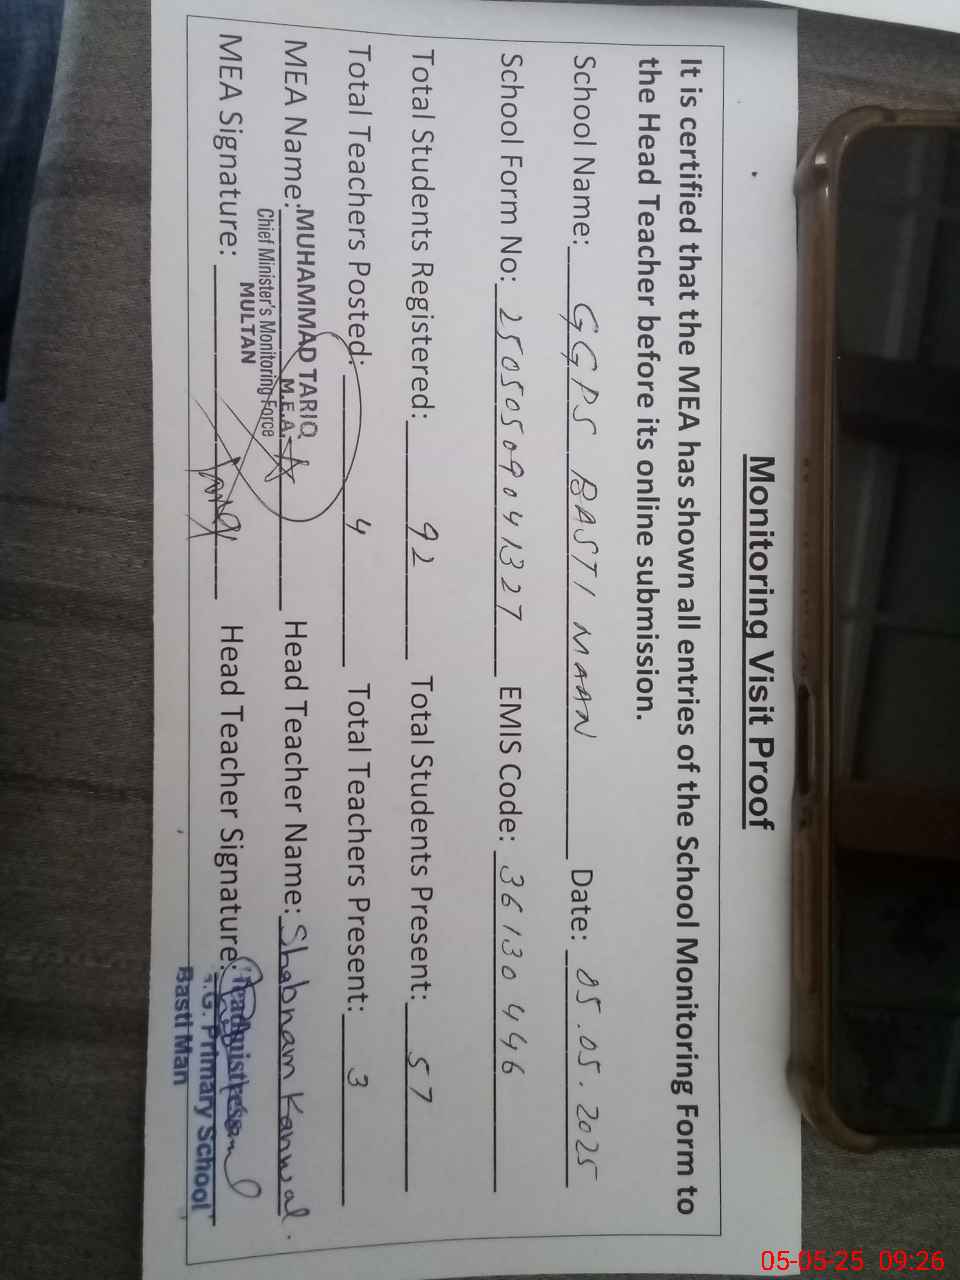 Monitoring Visit Proof
It is certified that the MEA has shown all entries of the School Monitoring Form to
the Head Teacher before its online submission.
School Name: GGPS BASTI MAAN Date: 05.05.2025
School Form No: 25050509041327 EMIS Code: 36130446
Total Students Registered: 92 Total Students Present: 57
Total Teachers Posted: 4 Total Teachers Present: 3
MEA Name: MUHAMMAD TARIQ Head Teacher Name: Shabnam Kanwal.
M.E.A.
Chief Minister's Monitoring Force
MULTAN
MEA Signature: Tariq Head Teacher Signature:
Headmistress
G. Primary School
Basti Man
05-05-25 09:26